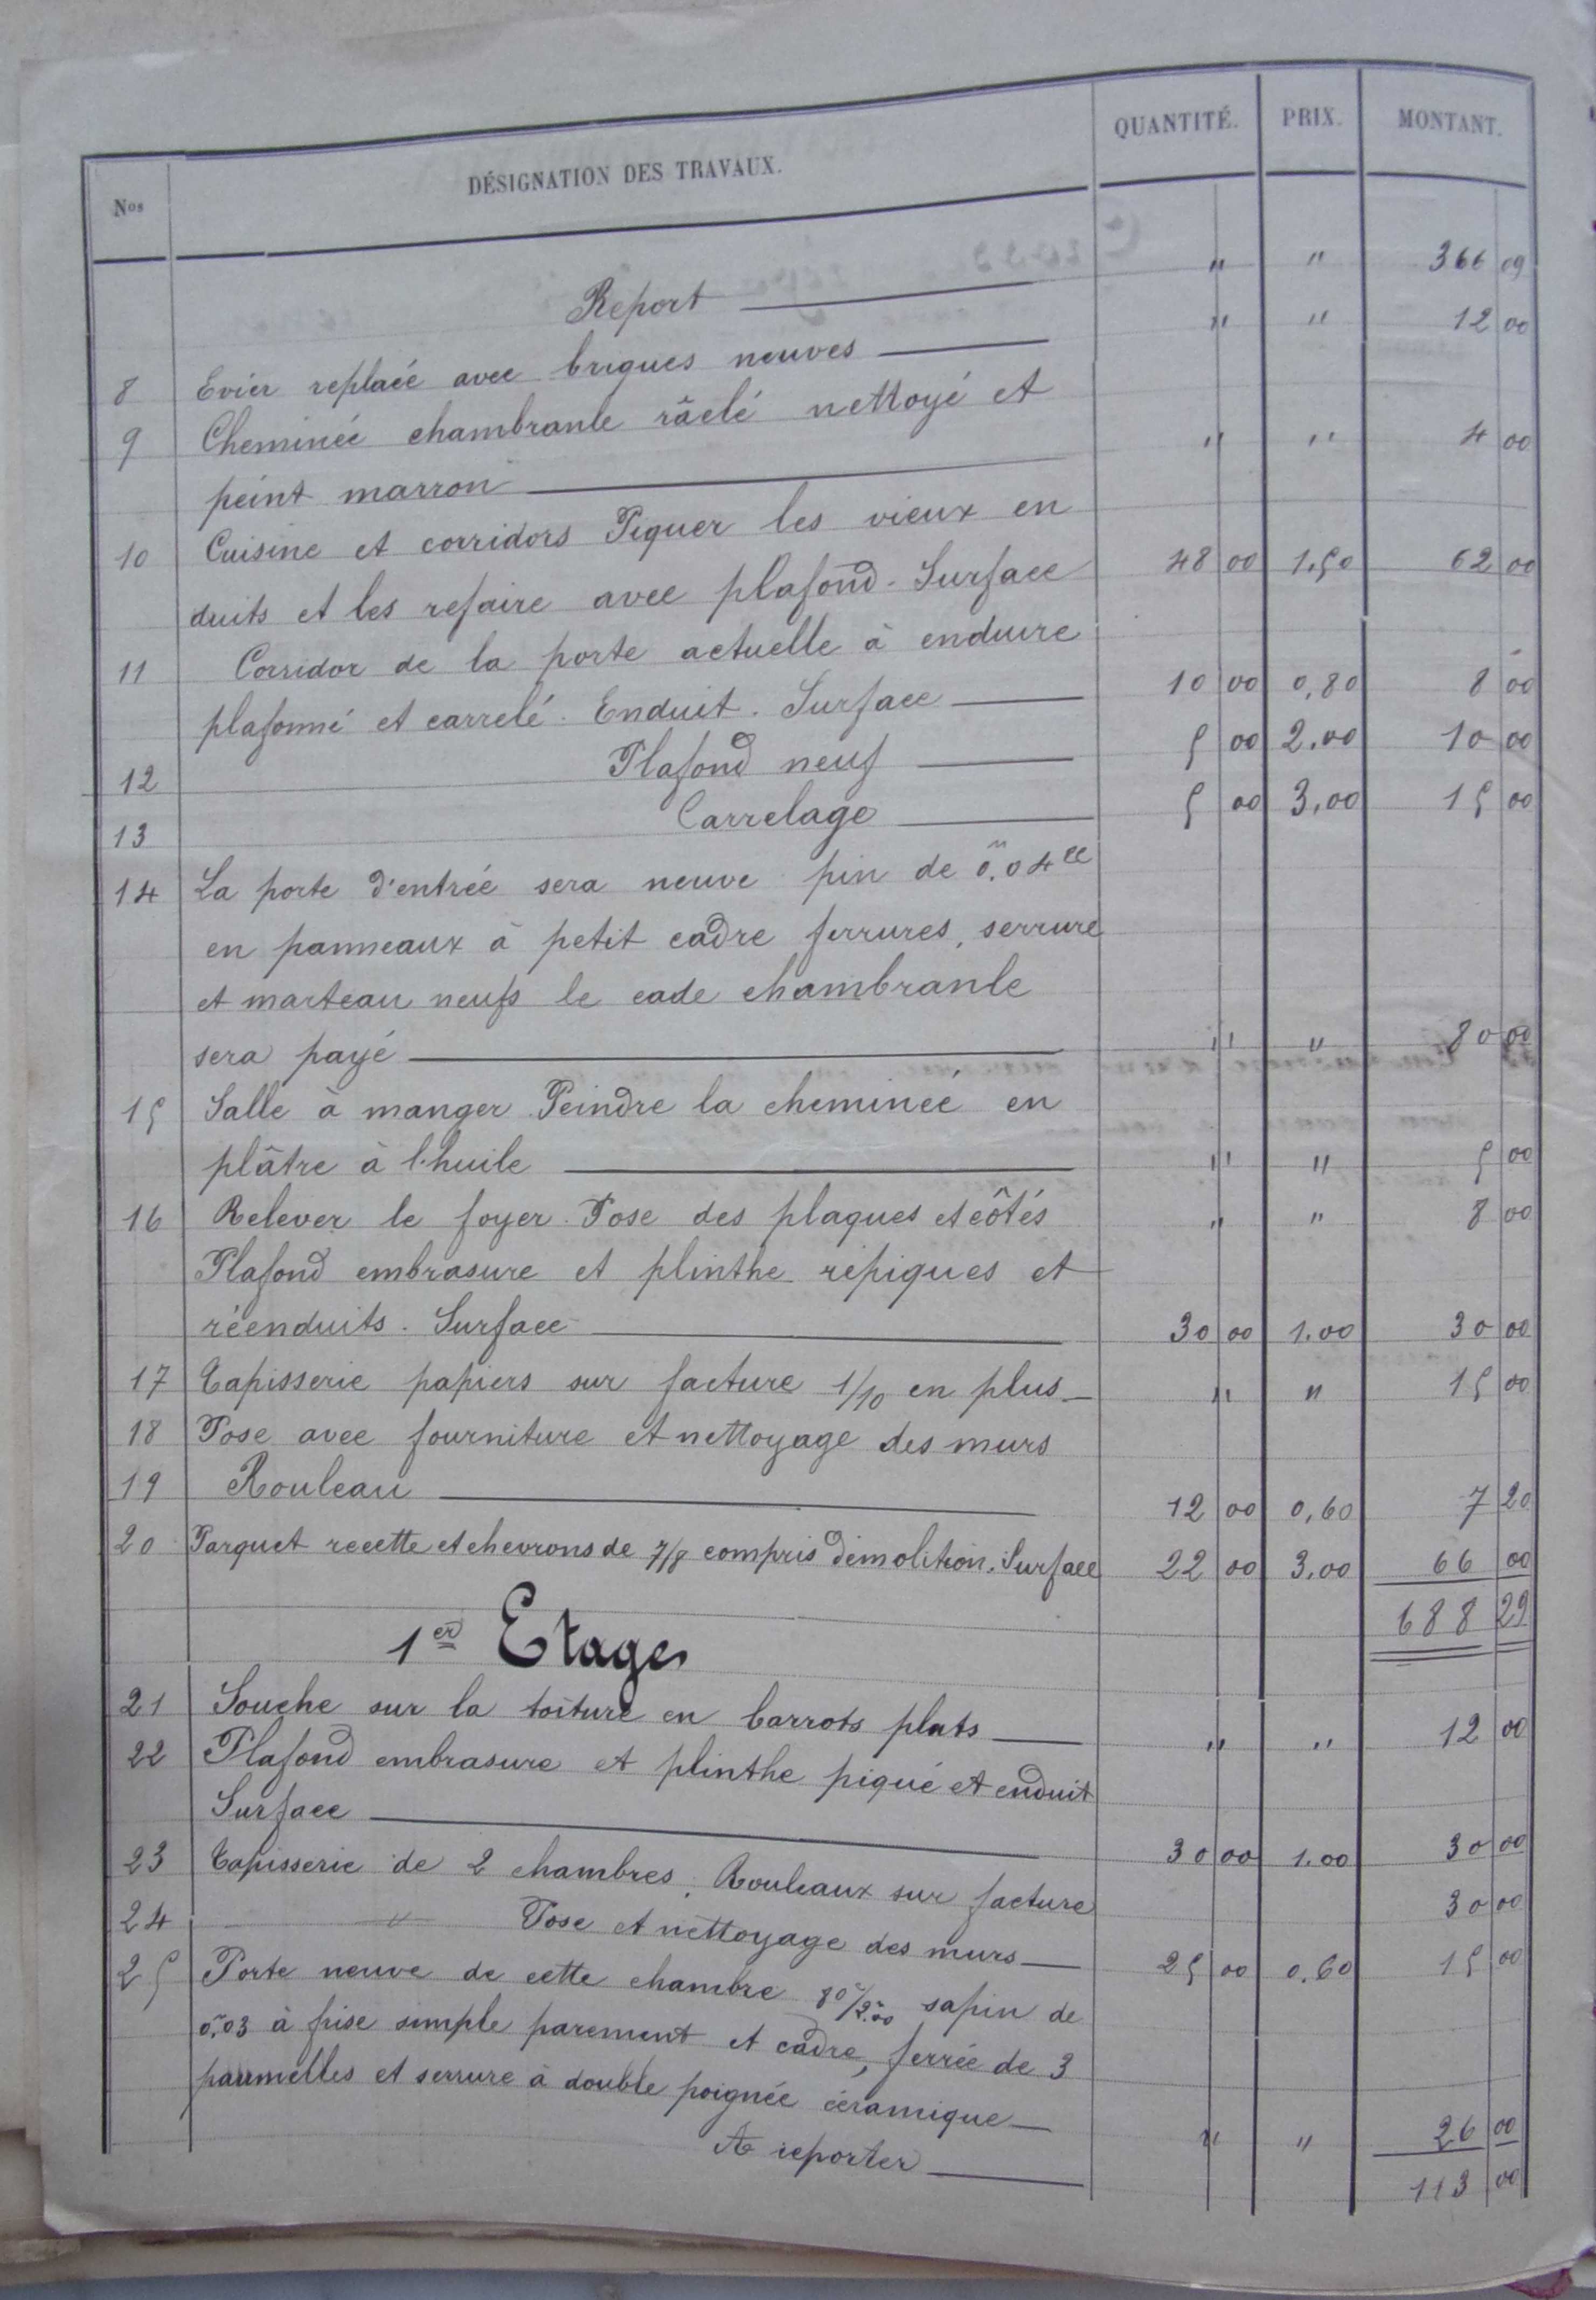 Nos DÉSIGNATION DES TRAVAUX. QUANTITÉ. PRIX. MONTANT.
Report " " 366 09
8 Evier replacé avec briques neuves " " 12 00
9 Cheminée chambranle râclé nettoyé et
peint marron " " 4 00
10 Cuisine et corridors Piquer les vieux en
duits et les refaire avec plafond. Surface 48 00 1.50 62 00
11 Corridor de la porte actuelle à enduire
plafonné et carrelé. Enduit. Surface 10 00 0,80 8 00
12 Plafond neuf 5 00 2.00 10 00
13 Carrelage 5 00 3,00 15 00
14 La porte d'entrée sera neuve pin de 0m.04 cc
en panneaux à petit cadre ferrures, serrure
et marteau neufs le cade chambranle
sera payé " " 80 00
15 Salle à manger Peindre la cheminée en
plâtre à l'huile " " 5 00
16 Relever le foyer. Pose des plaques et côtés " " 8 00
Plafond embrasure et plinthe repiqués et
réenduits. Surface 30 00 1.00 30 00
17 Tapisserie papiers sur facture 1/10 en plus " " 15 00
18 Pose avec fourniture et nettoyage des murs
19 Rouleau 12 00 0,60 7 20
20 Parquet recette et chevrons de 7/8 compris démolition. Surface 22 00 3,00 66 00
688 29
1er Etage
21 Souche sur la toiture en barrots plats " " 12 00
22 Plafond embrasure et plinthe piqué et enduit
Surface 30 00 1.00 30 00
23 Tapisserie de 2 chambres. Rouleaux sur facture 30 00
24 " Pose et nettoyage des murs 25 00 0.60 15 00
25 Porte neuve de cette chambre 80/2.00 sapin de
0m,03 à frise simple parement et cadre, ferrée de 3
paumelles et serrure à double poignée céramique " " 26 00
A reporter 113 00